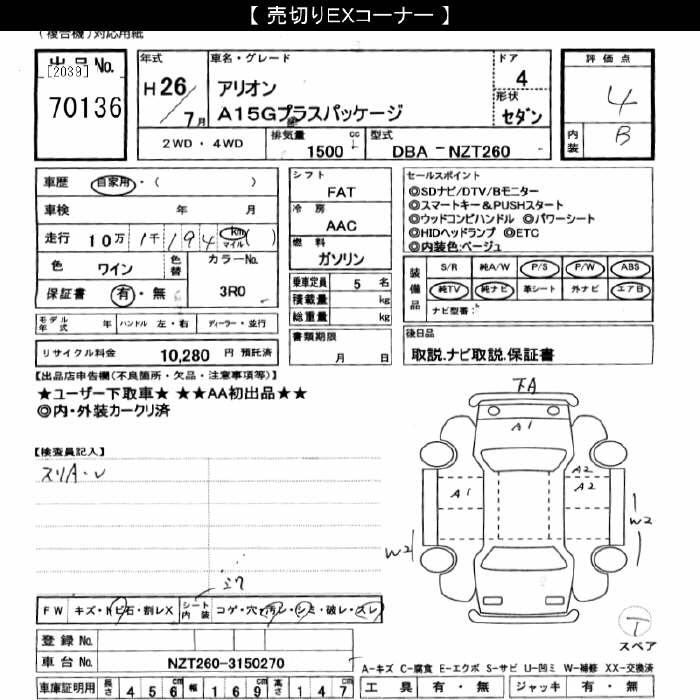 【 売切りEXコーナー 】
(複合機)対応用紙
出品No.
[2039]
70136
年式
H 26 / 7月
車名・グレード
アリオン
A15Gプラスパッケージ
ドア
4
形状
セダン
評価点
4
内装
B
2WD・4WD
排気量
1500 cc
型式
DBA - NZT260
車歴 自家用・( )
車検 年 月
走行 10万 1千 194 km マイル ( )
色 ワイン
色替
カラーNo.
3R0
保証書 有・無
シフト
FAT
冷房
AAC
燃料
ガソリン
乗車定員 5 名
積載量 kg
総重量 kg
セールスポイント
◎SDナビ/DTV/Bモニター
◎スマートキー&PUSHスタート
◎ウッドコンビハンドル ◎パワーシート
◎HIDヘッドランプ ◎ETC
◎内装色:ベージュ
装備品
S/R 純A/W P/S P/W ABS
純TV 純ナビ 革シート 外ナビ エアB
ナビ型番:
モデル年式 年 ハンドル 左・右 ディーラー・並行
リサイクル料金 10,280 円 預託済
書類期限
月 日
後日品
取説.ナビ取説.保証書
【出品店申告欄(不良箇所・欠品・注意事項等)】
★ユーザー下取車★ ★★AA初出品★★
◎内・外装カークリ済
【検査員記入】
スリA・レ
下A
A1
A1
A2
A2
W2
W2
FW キズ・トビ石・割レX
シート内装 コゲ・穴・汚レ・シミ・破レ・スレ
登録No.
車台No. NZT260-3150270
車庫証明用 長さ 456 cm 幅 169 cm 高さ 147 cm
T
スペア
A-キズ C-腐食 E-エクボ S-サビ U-凹ミ W-補修 XX-交換済
工具 有・無 ジャッキ 有・無